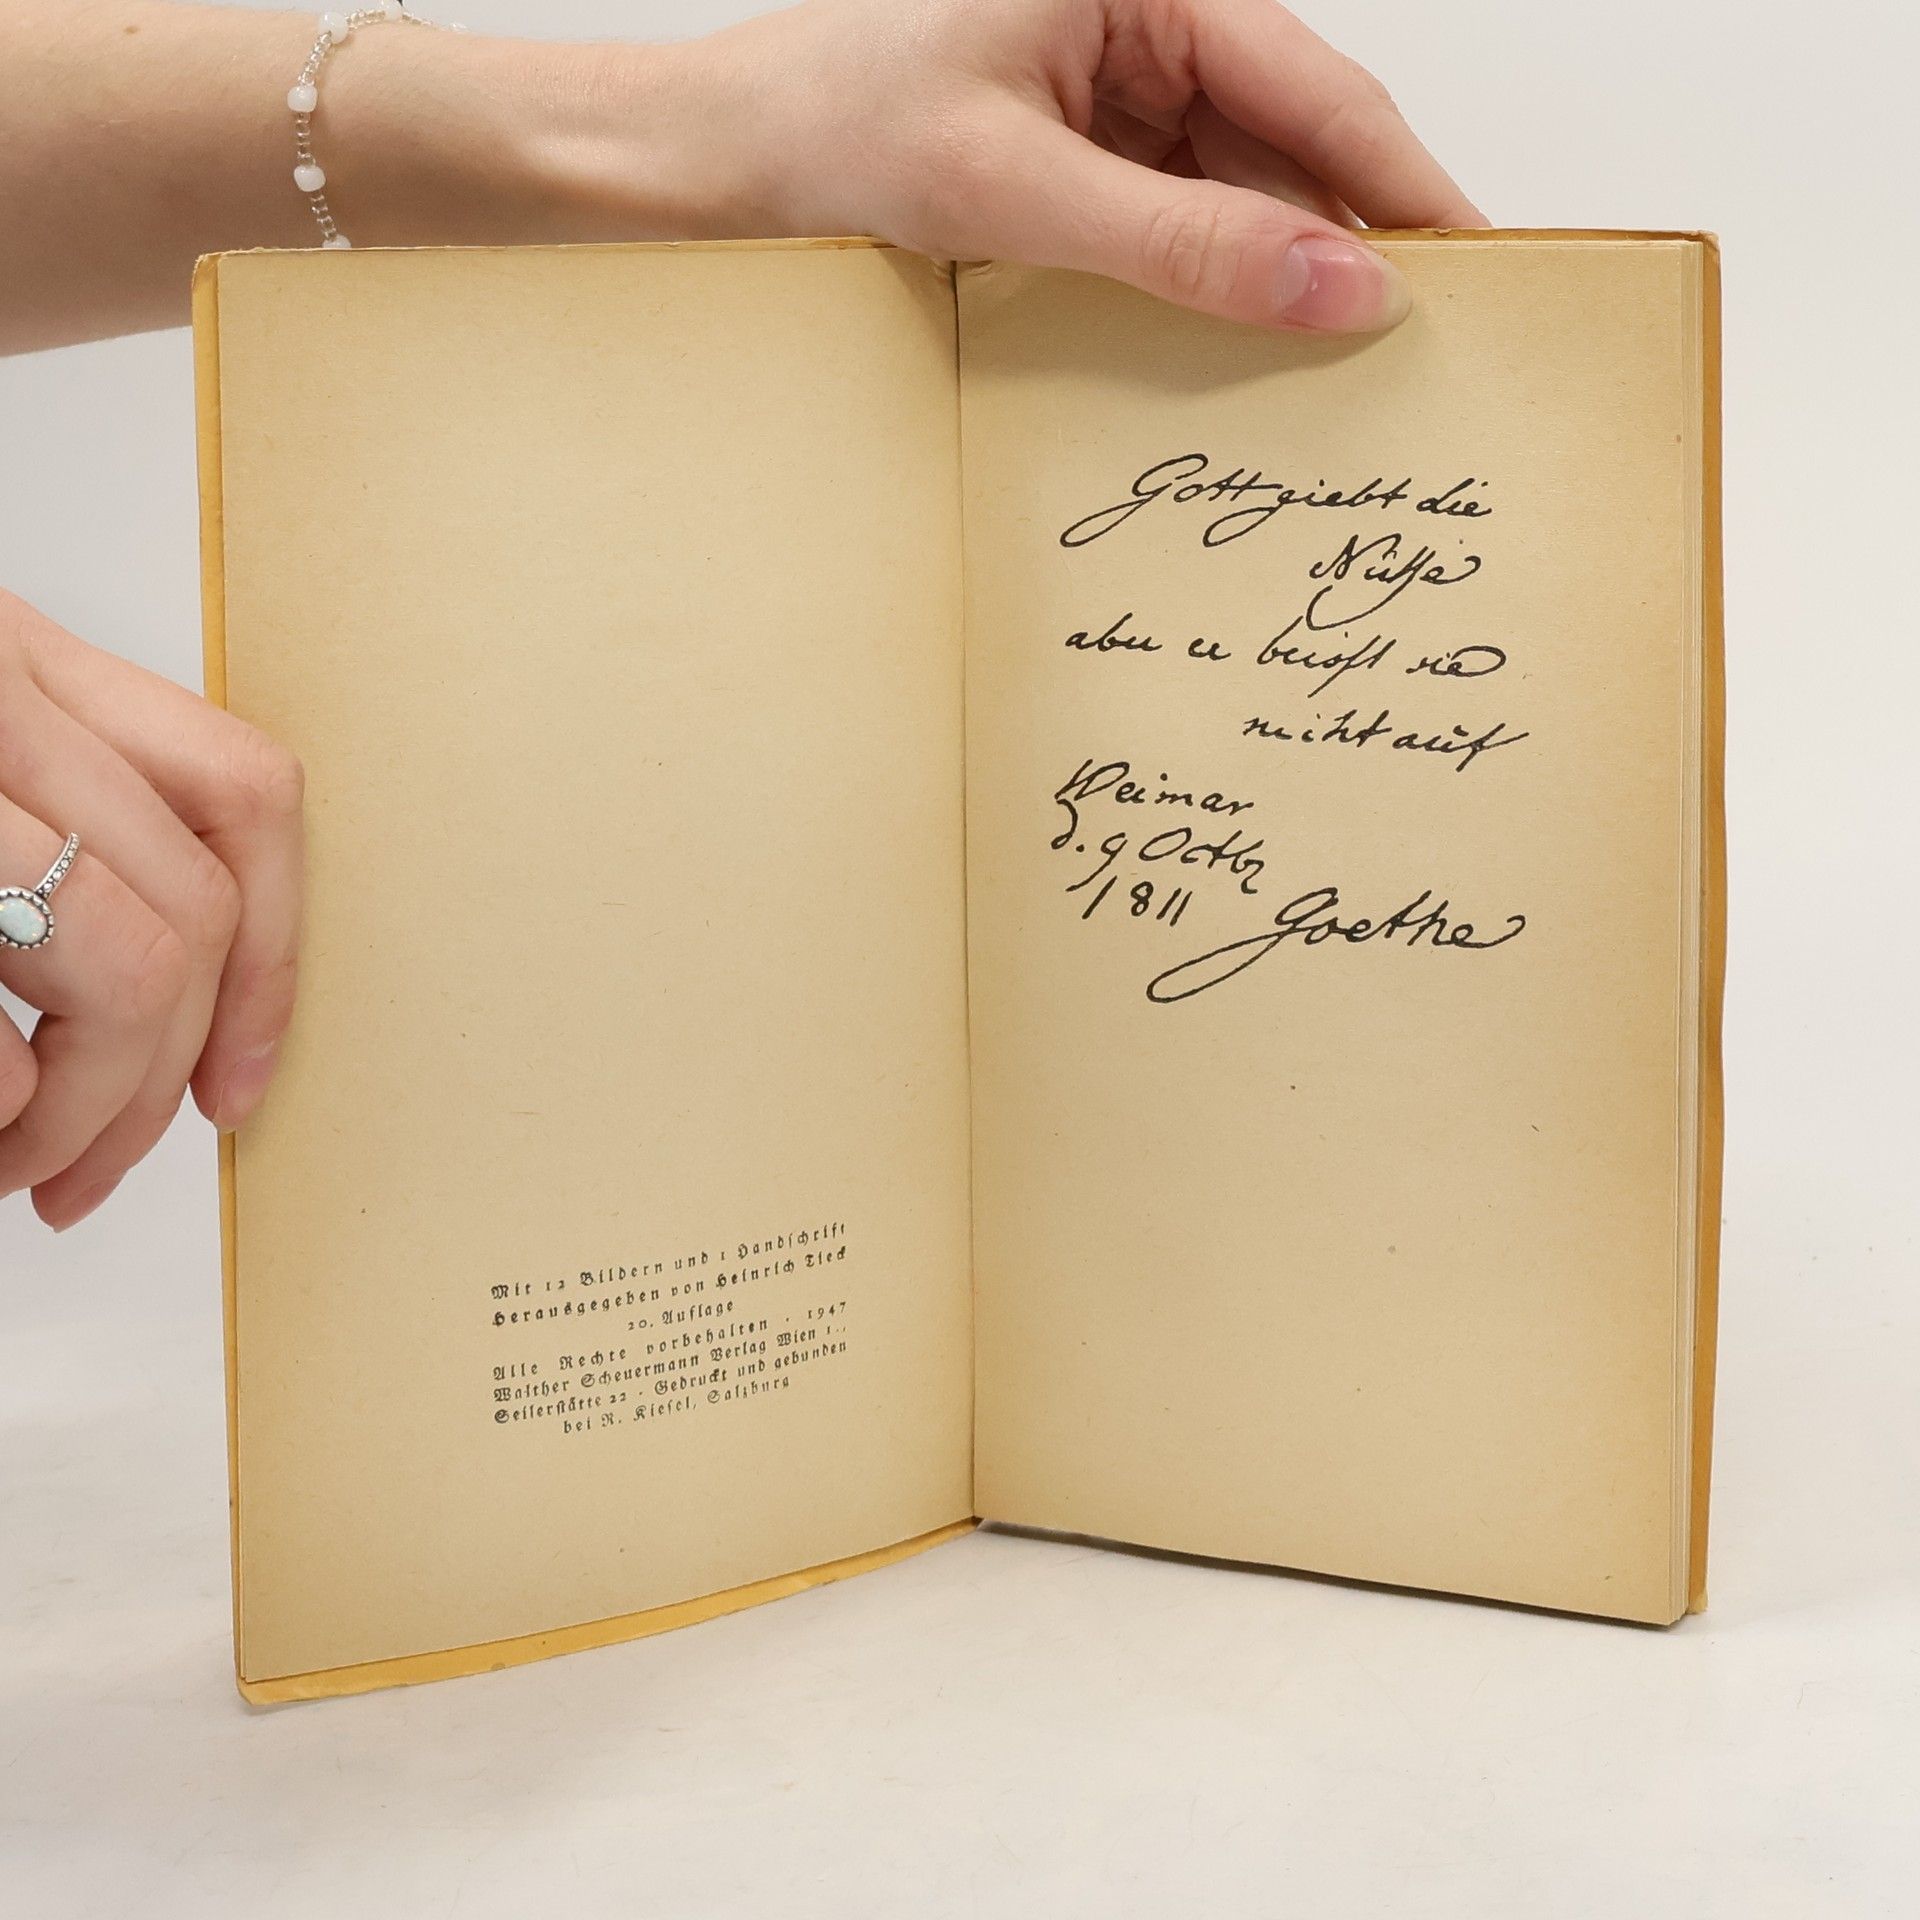 Mit 12 Bildern und 1 Handschrift
Herausgegeben von Heinrich Tieck
20. Auflage
Alle Rechte vorbehalten · 1947
Walther Scheuermann Verlag Wien 1.,
Seilerstätte 22 · Gedruckt und gebunden
bei R. Kiesel, Salzburg
Gott giebt die
Nüße
aber er beisst sie
nicht auf
Weimar
d. 9 Octbr
1811
Goethe